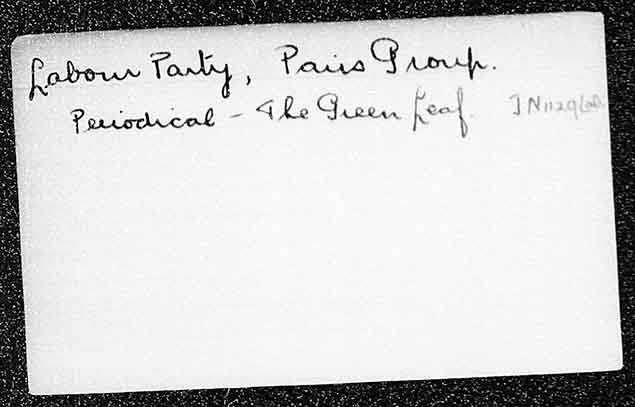 Labour Party, Paris Group.
Periodical - The Green Leaf. JN1129Lab